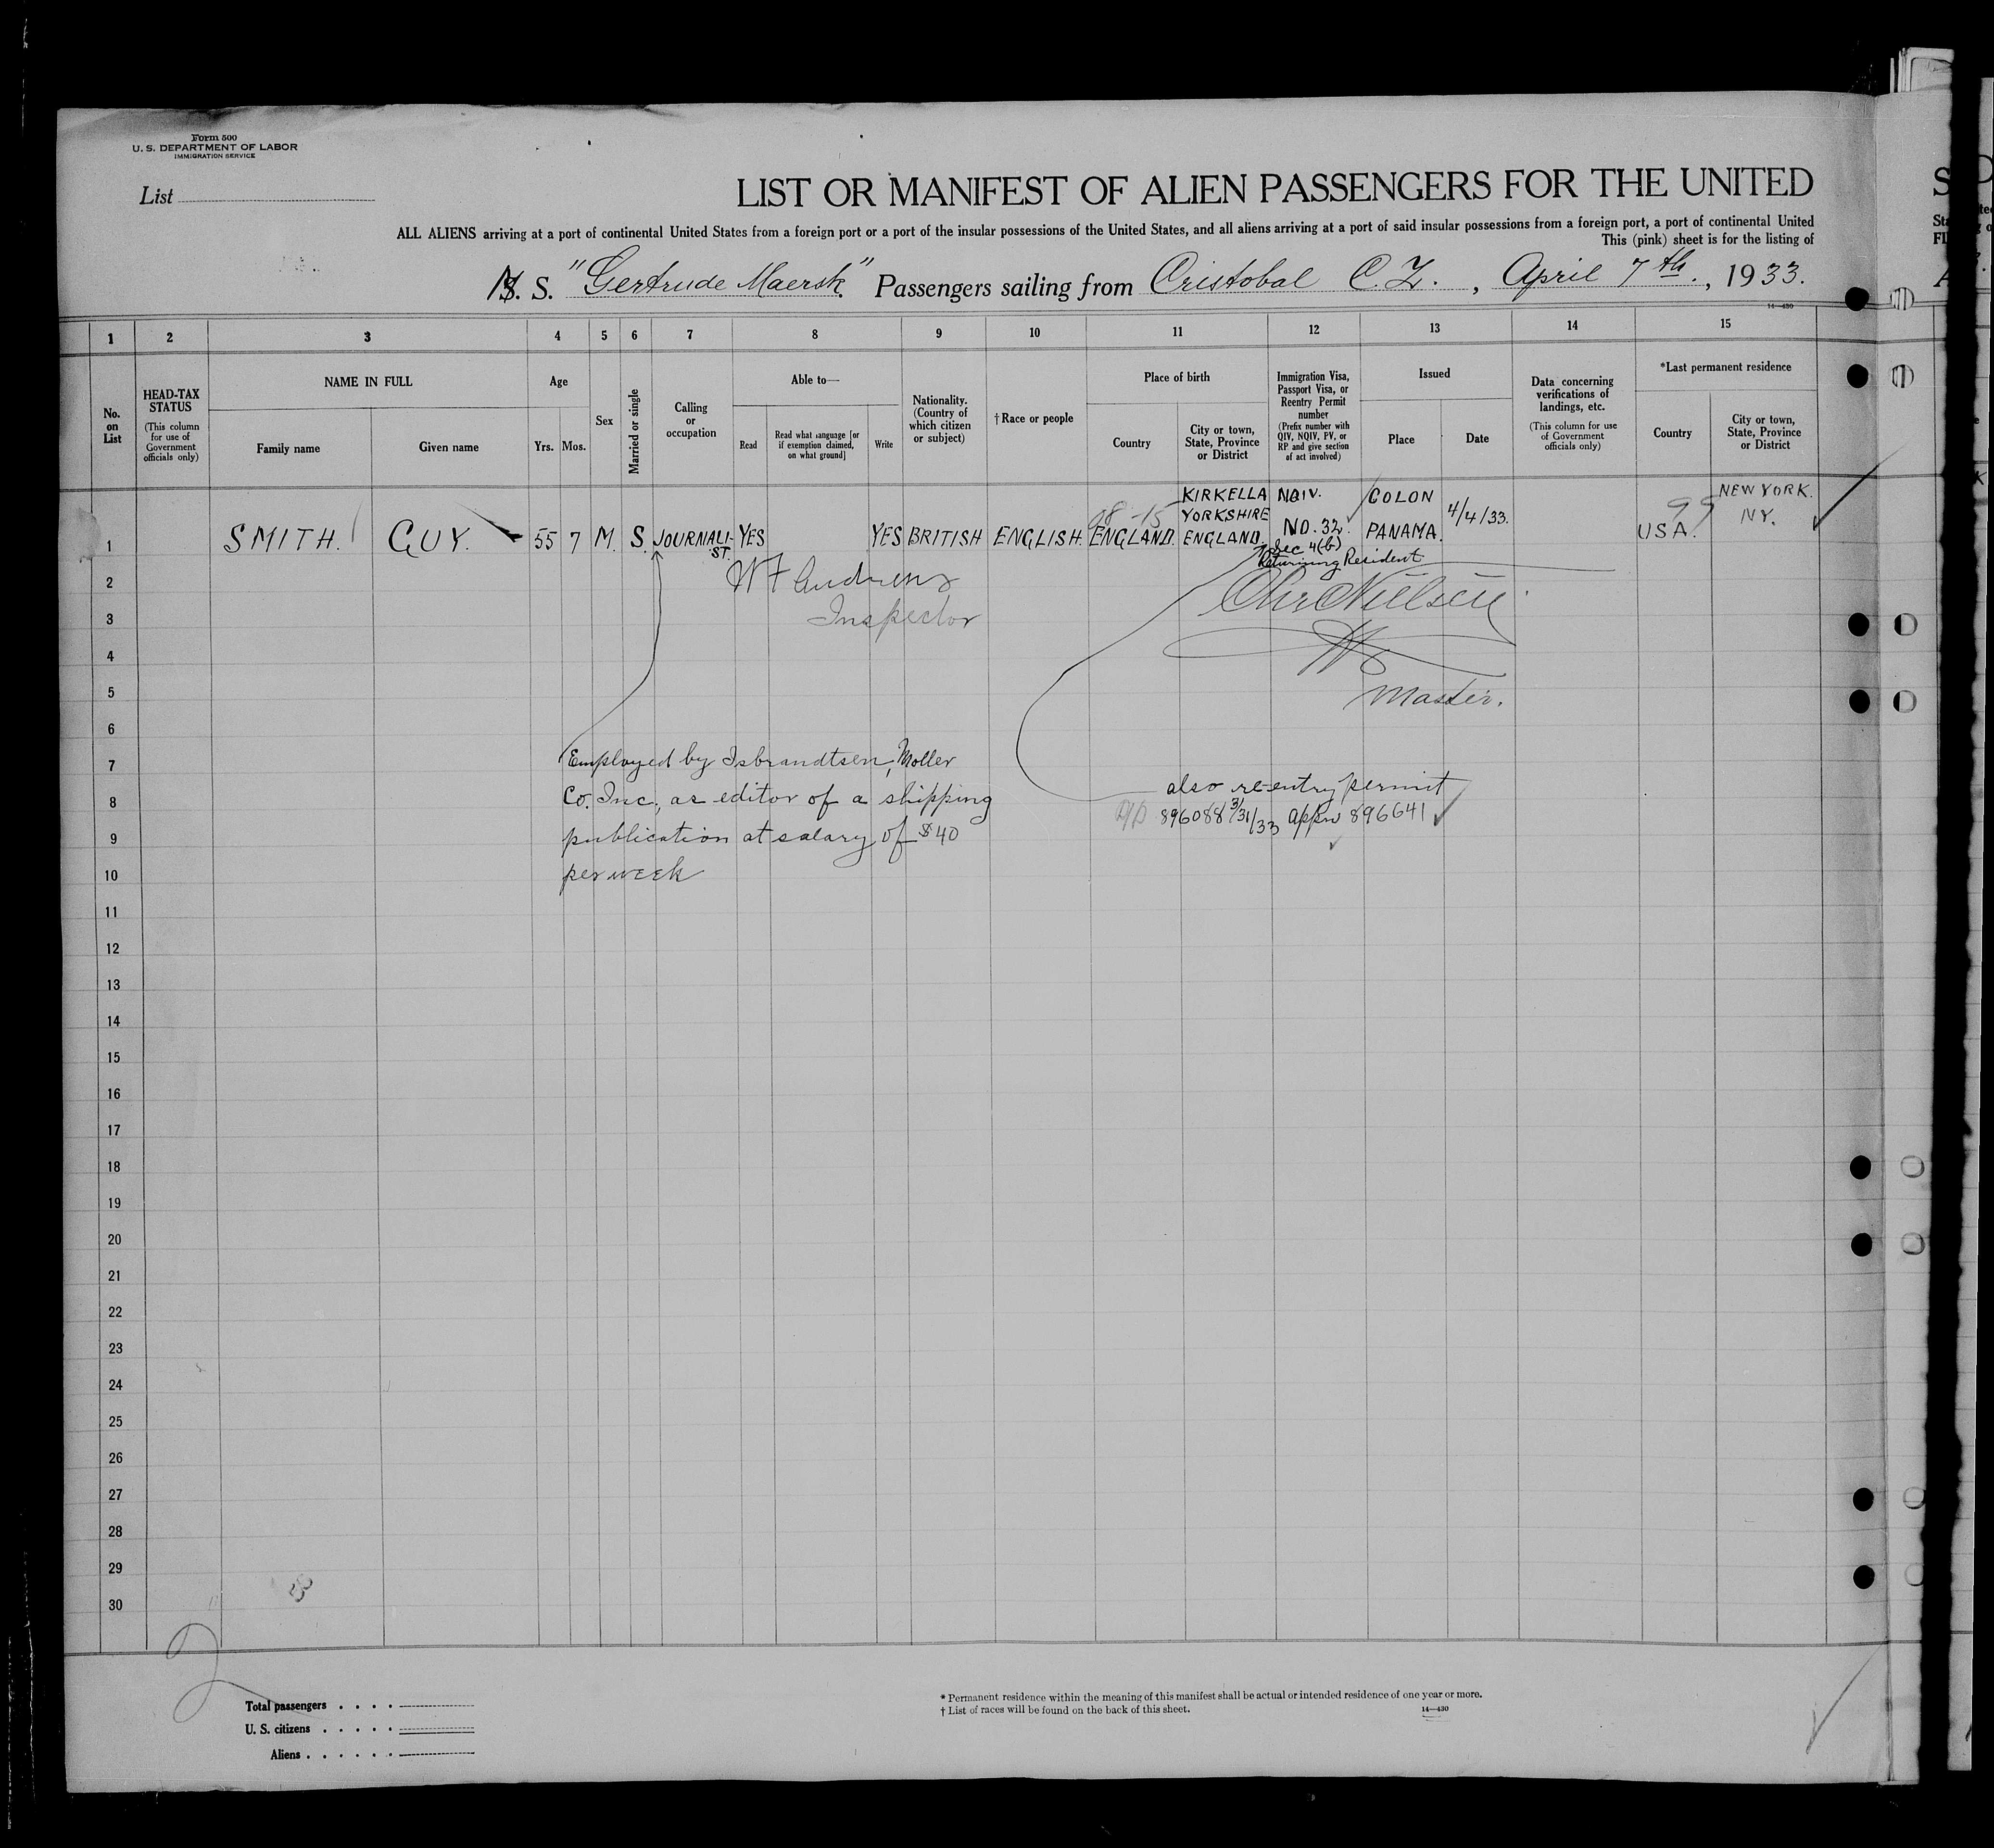 Form 500
U. S. DEPARTMENT OF LABOR
IMMIGRATION SERVICE
List
LIST OR MANIFEST OF ALIEN PASSENGERS FOR THE UNITED
ALL ALIENS arriving at a port of continental United States from a foreign port or a port of the insular possessions of the United States, and all aliens arriving at a port of said insular possessions from a foreign port, a port of continental United
This (pink) sheet is for the listing of
M. S. "Gertrude Maersk" Passengers sailing from Cristobal C.Z., April 7th, 1933.
14—430
1 2 3 4 5 6 7 8 9 10 11 12 13 14 15
No. on List
HEAD-TAX STATUS
(This column for use of Government officials only)
NAME IN FULL
Family name
Given name
Age
Yrs. Mos.
Sex
Married or single
Calling or occupation
Able to—
Read
Read what language [or if exemption claimed, on what ground]
Write
Nationality. (Country of which citizen or subject)
†Race or people
Place of birth
Country
City or town, State, Province or District
Immigration Visa, Passport Visa, or Reentry Permit number
(Prefix number with QIV, NQIV, PV, or RP and give section of act involved)
Issued
Place
Date
Data concerning verifications of landings, etc.
(This column for use of Government officials only)
*Last permanent residence
Country
City or town, State, Province or District
1 SMITH. GUY. 55 7 M. S. JOURNALI-ST. YES YES BRITISH ENGLISH. ENGLAND. KIRKELLA YORKSHIRE ENGLAND. NQIV. NO. 32. COLON PANAMA. 4/4/33. USA. NEW YORK. NY.
99
Sec 4(b)
Returning Resident
2
W F Andrews
3
Inspector
4
5
Master.
6
7
Employed by Isbrandtsen, Moller
8
Co. Inc., as editor of a shipping
also re-entry permit
9
publication at salary of $40
896088 3/31/33 appn 896641
10
per week
11
12
13
14
15
16
17
18
19
20
21
22
23
24
25
26
27
28
29
30
Total passengers
U. S. citizens
Aliens
* Permanent residence within the meaning of this manifest shall be actual or intended residence of one year or more.
† List of races will be found on the back of this sheet.
14—430